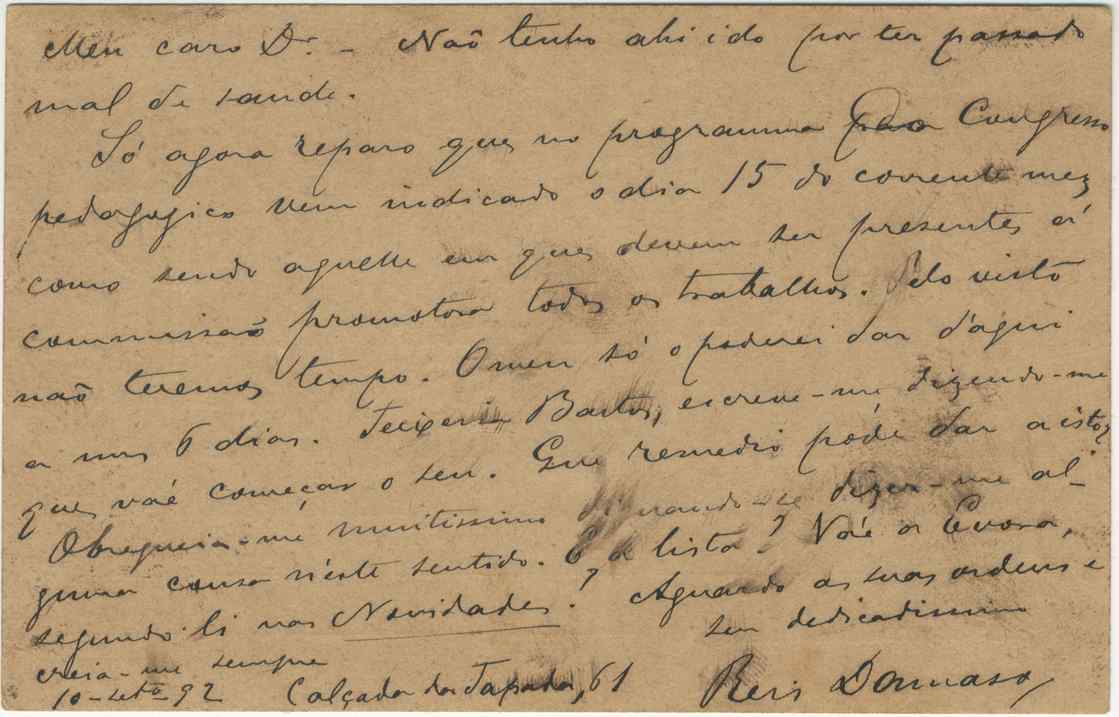 Meu caro Dr. - Não tenho ahi ido por ter passado
mal de saude.
Só agora reparo que no programma do Congresso
pedagogico vem indicado o dia 15 do corrente mez
como sendo aquelle em que devem ser presentes á
commissão promotora todos os trabalhos. Pelo visto
não teremos tempo. O meu só o poderei dar d'aqui
a uns 6 dias. Teixeira Bastos, escreve-me dizendo-me
que vae começar o seu. Que remedio póde dar a isto?
Obsequeia-me muitissimo dignando-se dizer-me al-
guma cousa n'este sentido. E a lista? Vae a Evora,
segundo li nas Novidades? Aguardo as suas ordens e
creia-me sempre seu dedicadissimo
10-setº-92 Calçada da Tapada, 61 Reis Damaso